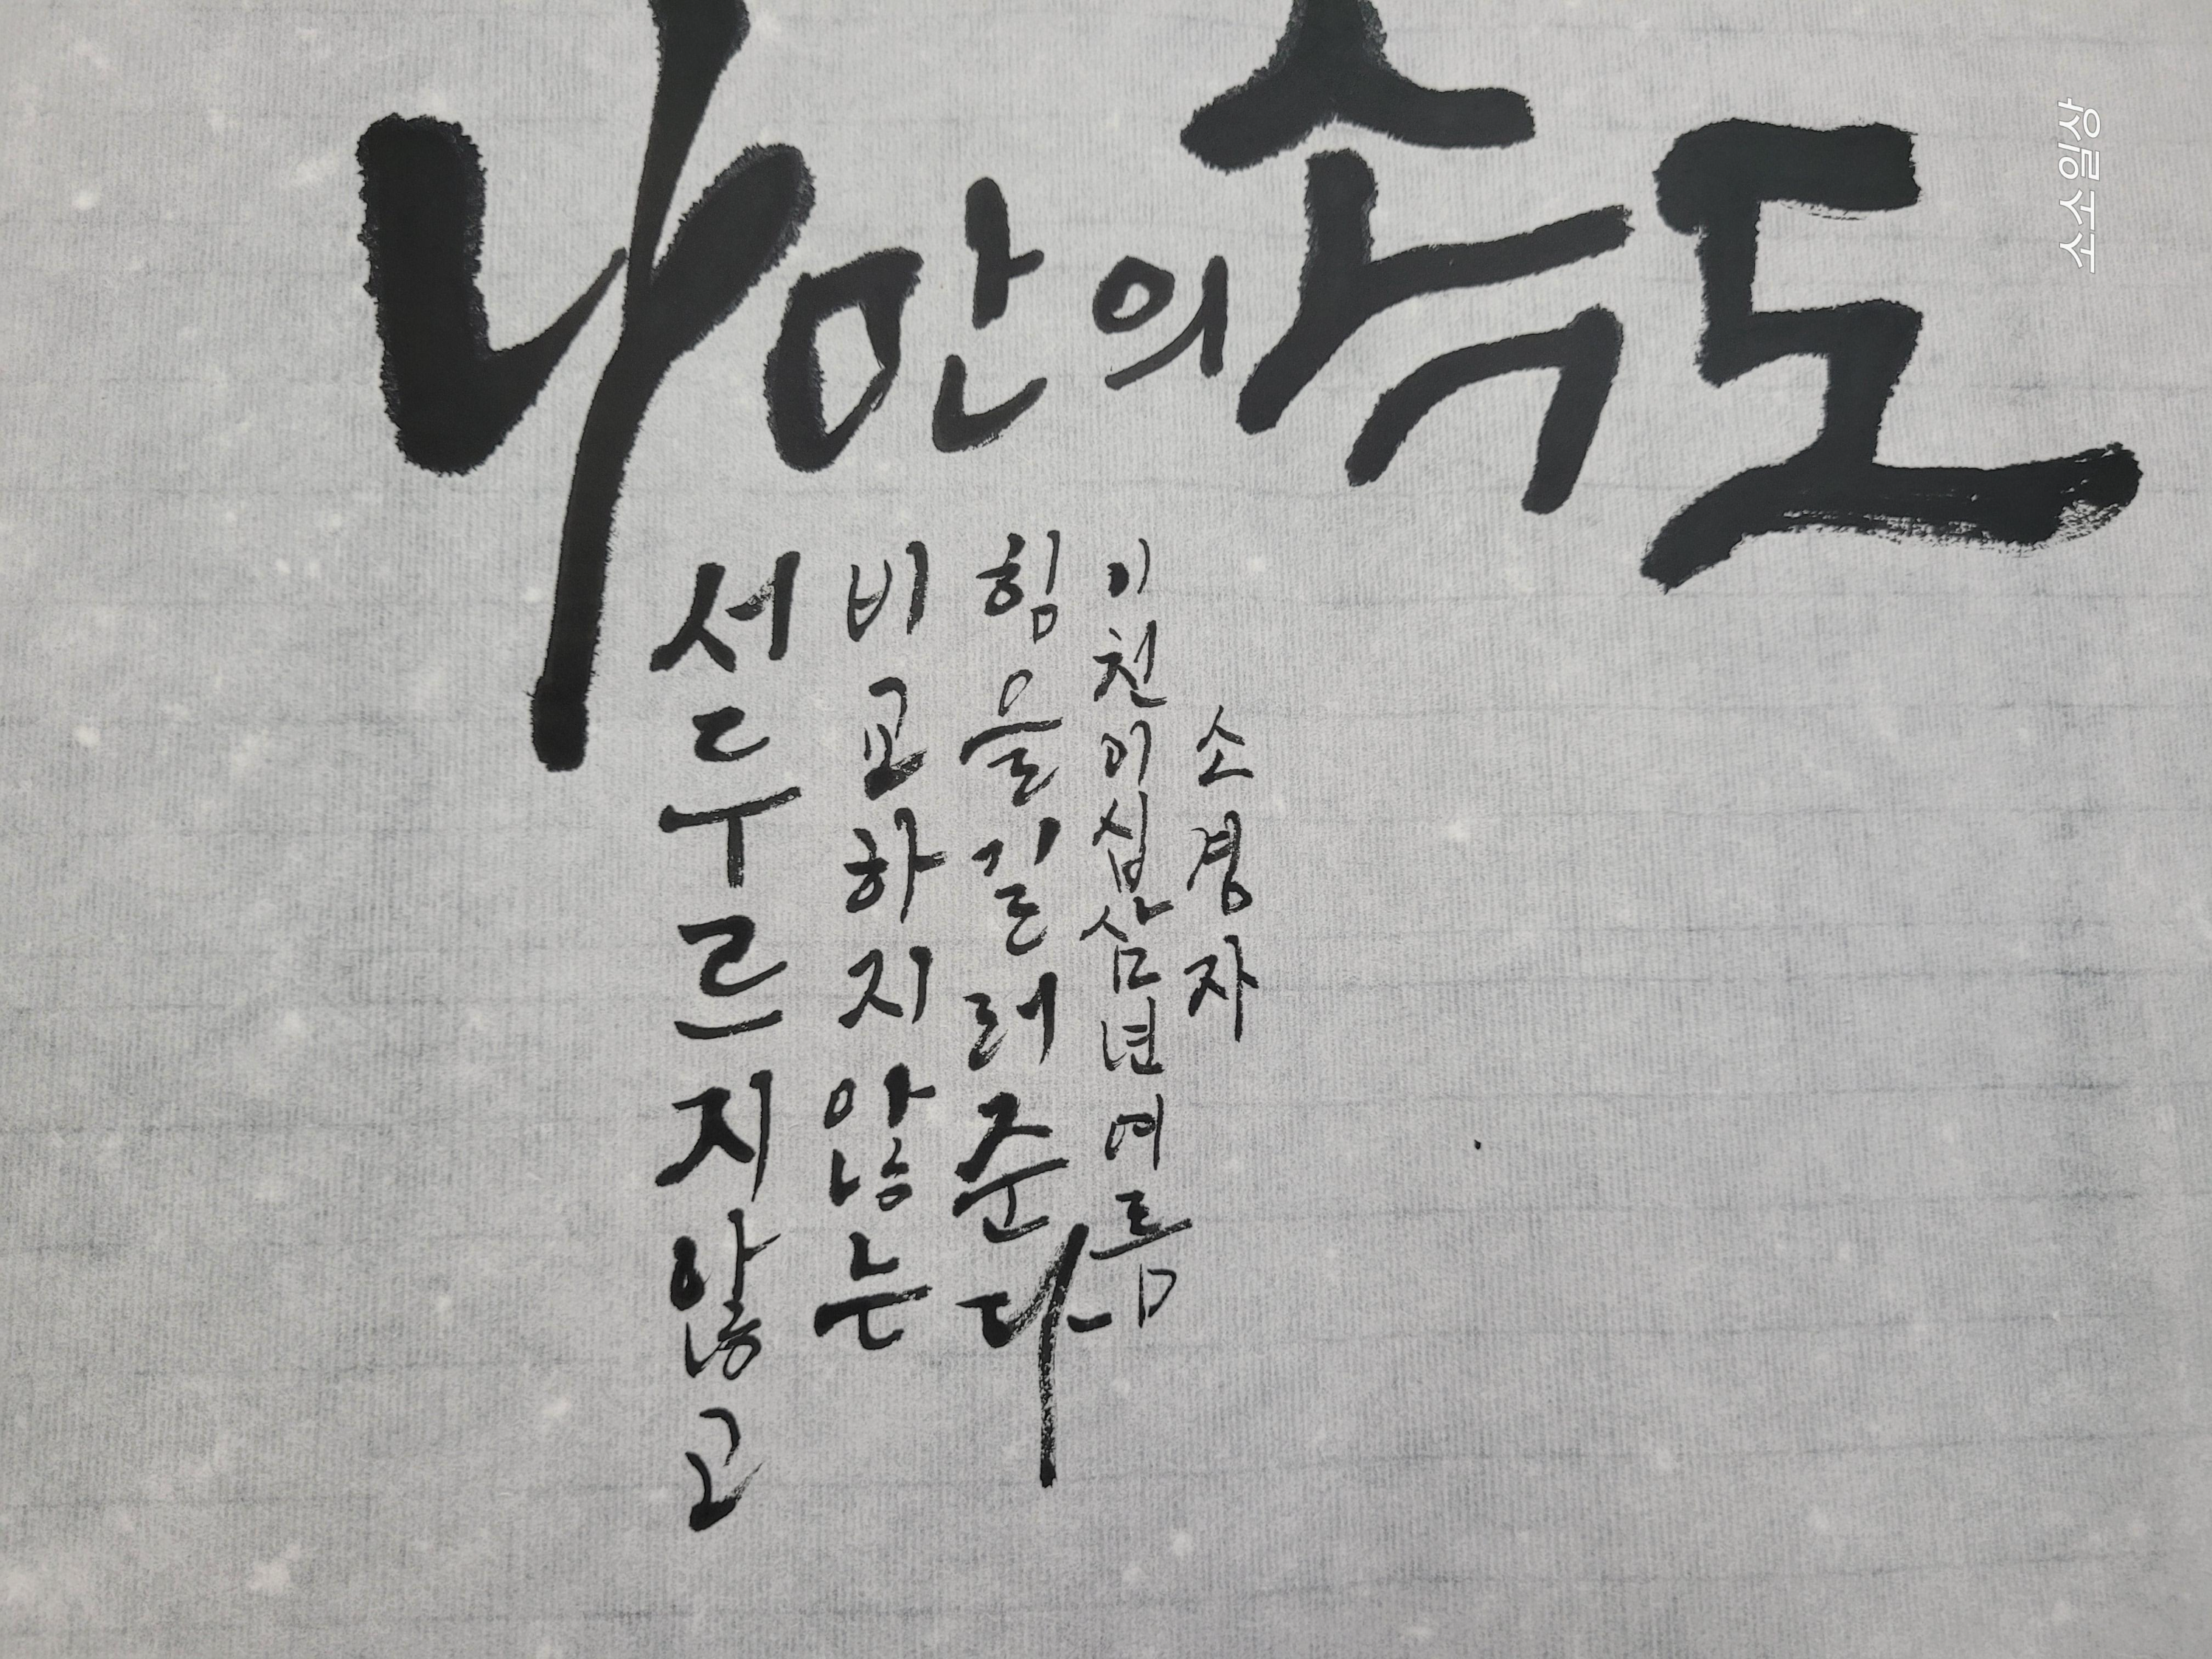 나만의속도
서두르지않고
비교하지않는
힘을길러준다
이천이십삼년여름
소경자
소소일상